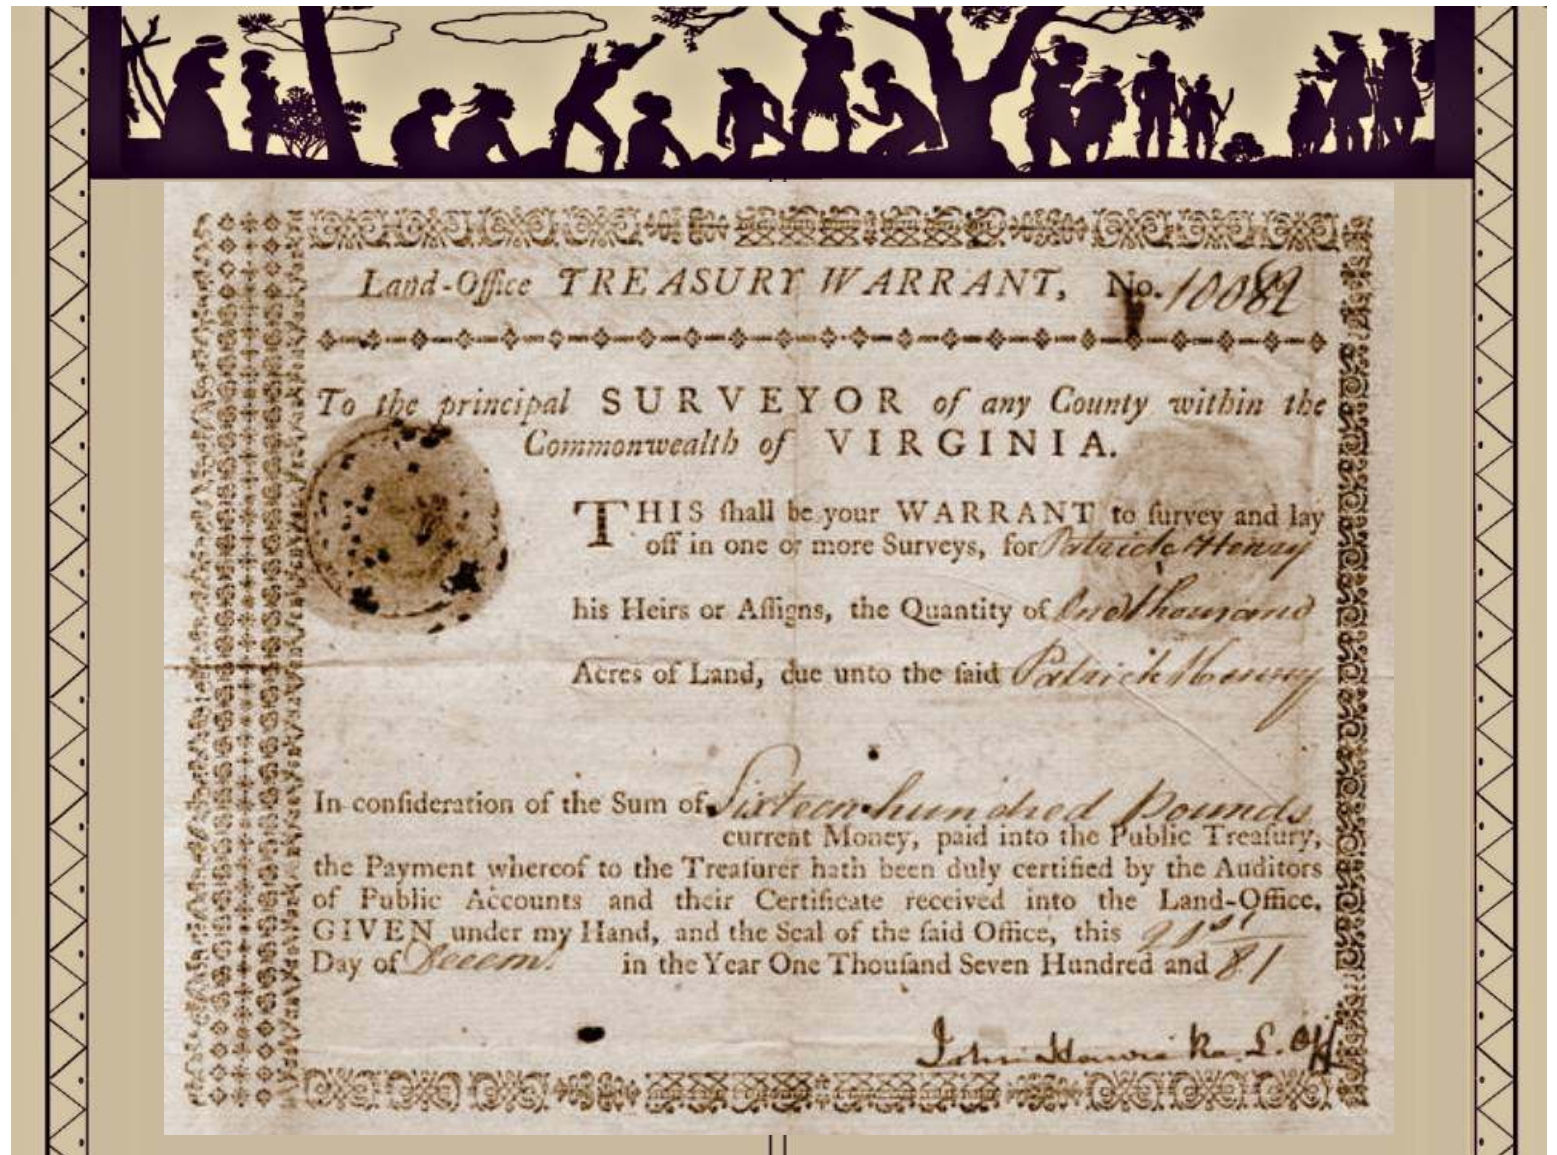 Land-Office TREASURY WARRANT, No. 10082
To the principal SURVEYOR of any County within the
Commonwealth of VIRGINIA.
THIS ſhall be your WARRANT to ſurvey and lay
off in one or more Surveys, for Patrick Henry
his Heirs or Aſſigns, the Quantity of One Thousand
Acres of Land, due unto the ſaid Patrick Henry
In conſideration of the Sum of Sixteen hundred Pounds
current Money, paid into the Public Treaſury,
the Payment whereof to the Treaſurer hath been duly certified by the Auditors
of Public Accounts and their Certificate received into the Land-Office.
GIVEN under my Hand, and the Seal of the ſaid Office, this 21st
Day of Decem. in the Year One Thouſand Seven Hundred and 81
John Harvie Re. L. Off